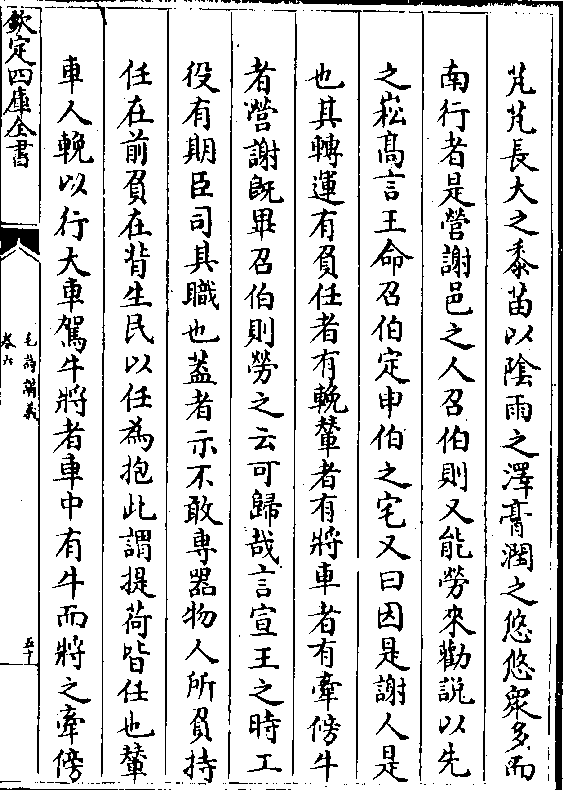 芃芃長大之黍苗以陰雨之澤膏潤之悠悠衆多而
南行者是營謝邑之人召伯則又能勞來勸說以先
之崧高言王命召伯定申伯之宅又曰因是謝人是
也其轉運有負任者有輓輦者有將車者有牽傍牛
者營謝既畢召伯則勞之云可歸哉言宣王之時工
役有期臣司其職也蓋者示不敢專器物人所負持
任在前負在背生民以任為抱此謂提荷皆任也輦
車人輓以行大車駕牛將者車中有牛而將之牽傍
欽定四庫全書
毛詩講義
卷六
五十